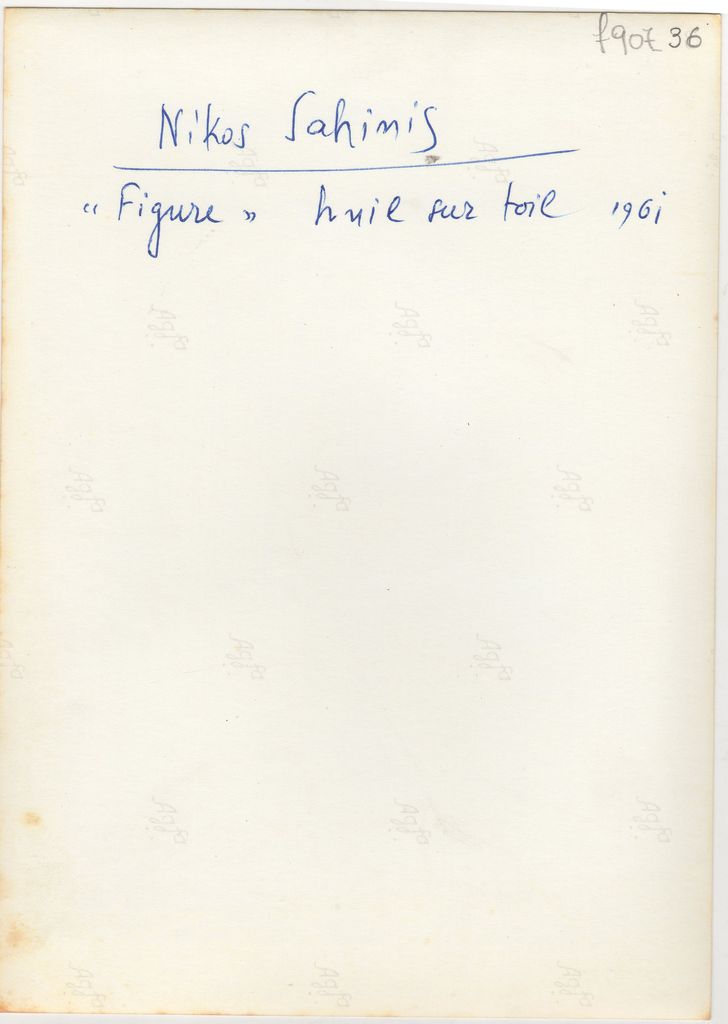 f90736
Nikos Sahinis
“ Figure ” huil sur toil 1961
Agfa
Agfa
Agfa
Agfa
Agfa
Agfa
Agfa
Agfa
Agfa
Agfa
Agfa
Agfa
Agfa
Agfa